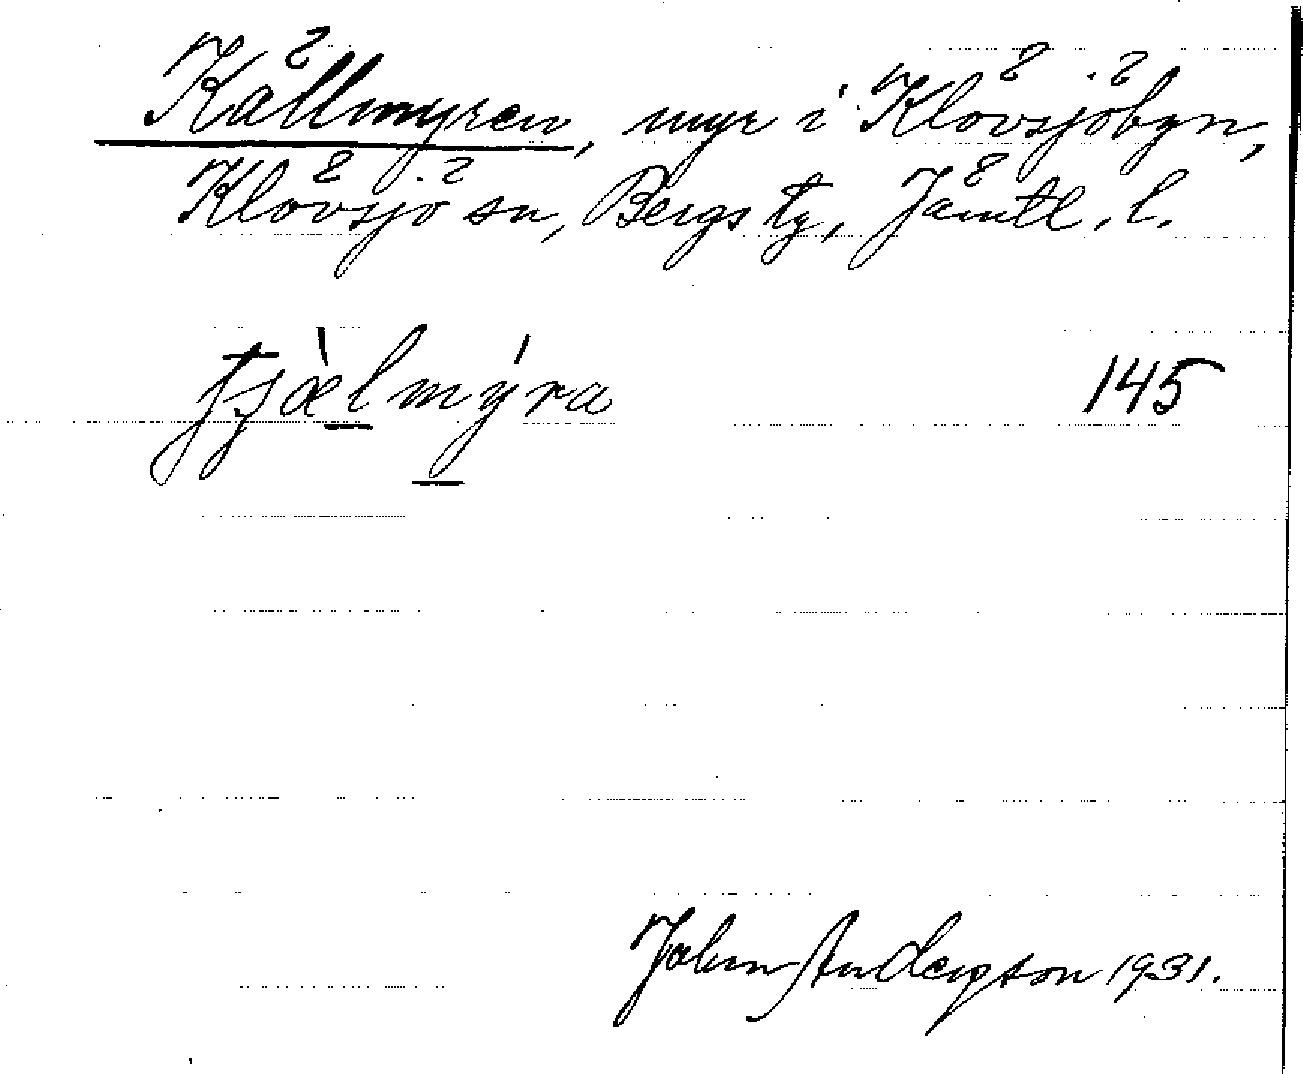 Källmyren, myr i Klövsjöbyn,
Klövsjö sn, Bergs tg, Jämtl. l.
tjæ̀lmýra 145
John Anderzson 1931.